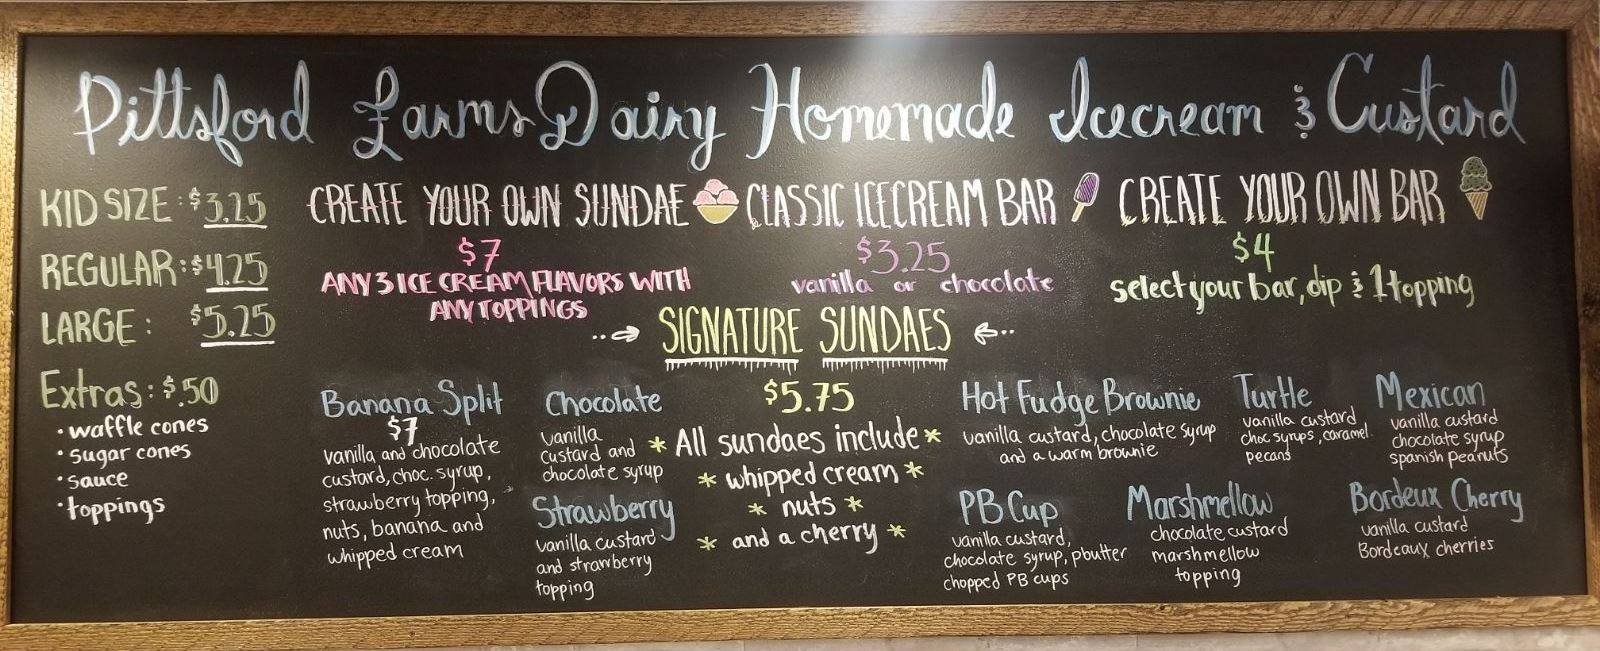 Pittsford Farms Dairy Homemade Icecream & Custard
KID SIZE: $3.25
REGULAR: $4.25
LARGE: $5.25
Extras: $.50
• waffle cones
• sugar cones
• sauce
• toppings
CREATE YOUR OWN SUNDAE
$7
ANY 3 ICE CREAM FLAVORS WITH
ANY TOPPINGS
CLASSIC ICECREAM BAR
$3.25
vanilla or chocolate
CREATE YOUR OWN BAR
$4
select your bar, dip & 1 topping
SIGNATURE SUNDAES
$5.75
* All sundaes include *
* whipped cream *
* nuts *
* and a cherry *
Banana Split
$7
vanilla and chocolate
custard, choc. syrup,
strawberry topping,
nuts, banana and
whipped cream
Chocolate
vanilla
custard and
chocolate syrup
Strawberry
vanilla custard
and strawberry
topping
Hot Fudge Brownie
vanilla custard, chocolate syrup
and a warm brownie
Turtle
vanilla custard
choc syrups, caramel
pecans
Mexican
vanilla custard
chocolate syrup
spanish peanuts
PB Cup
vanilla custard,
chocolate syrup, pbutter
chopped PB cups
Marshmellow
chocolate custard
marshmellow
topping
Bordeux Cherry
vanilla custard
Bordeaux cherries